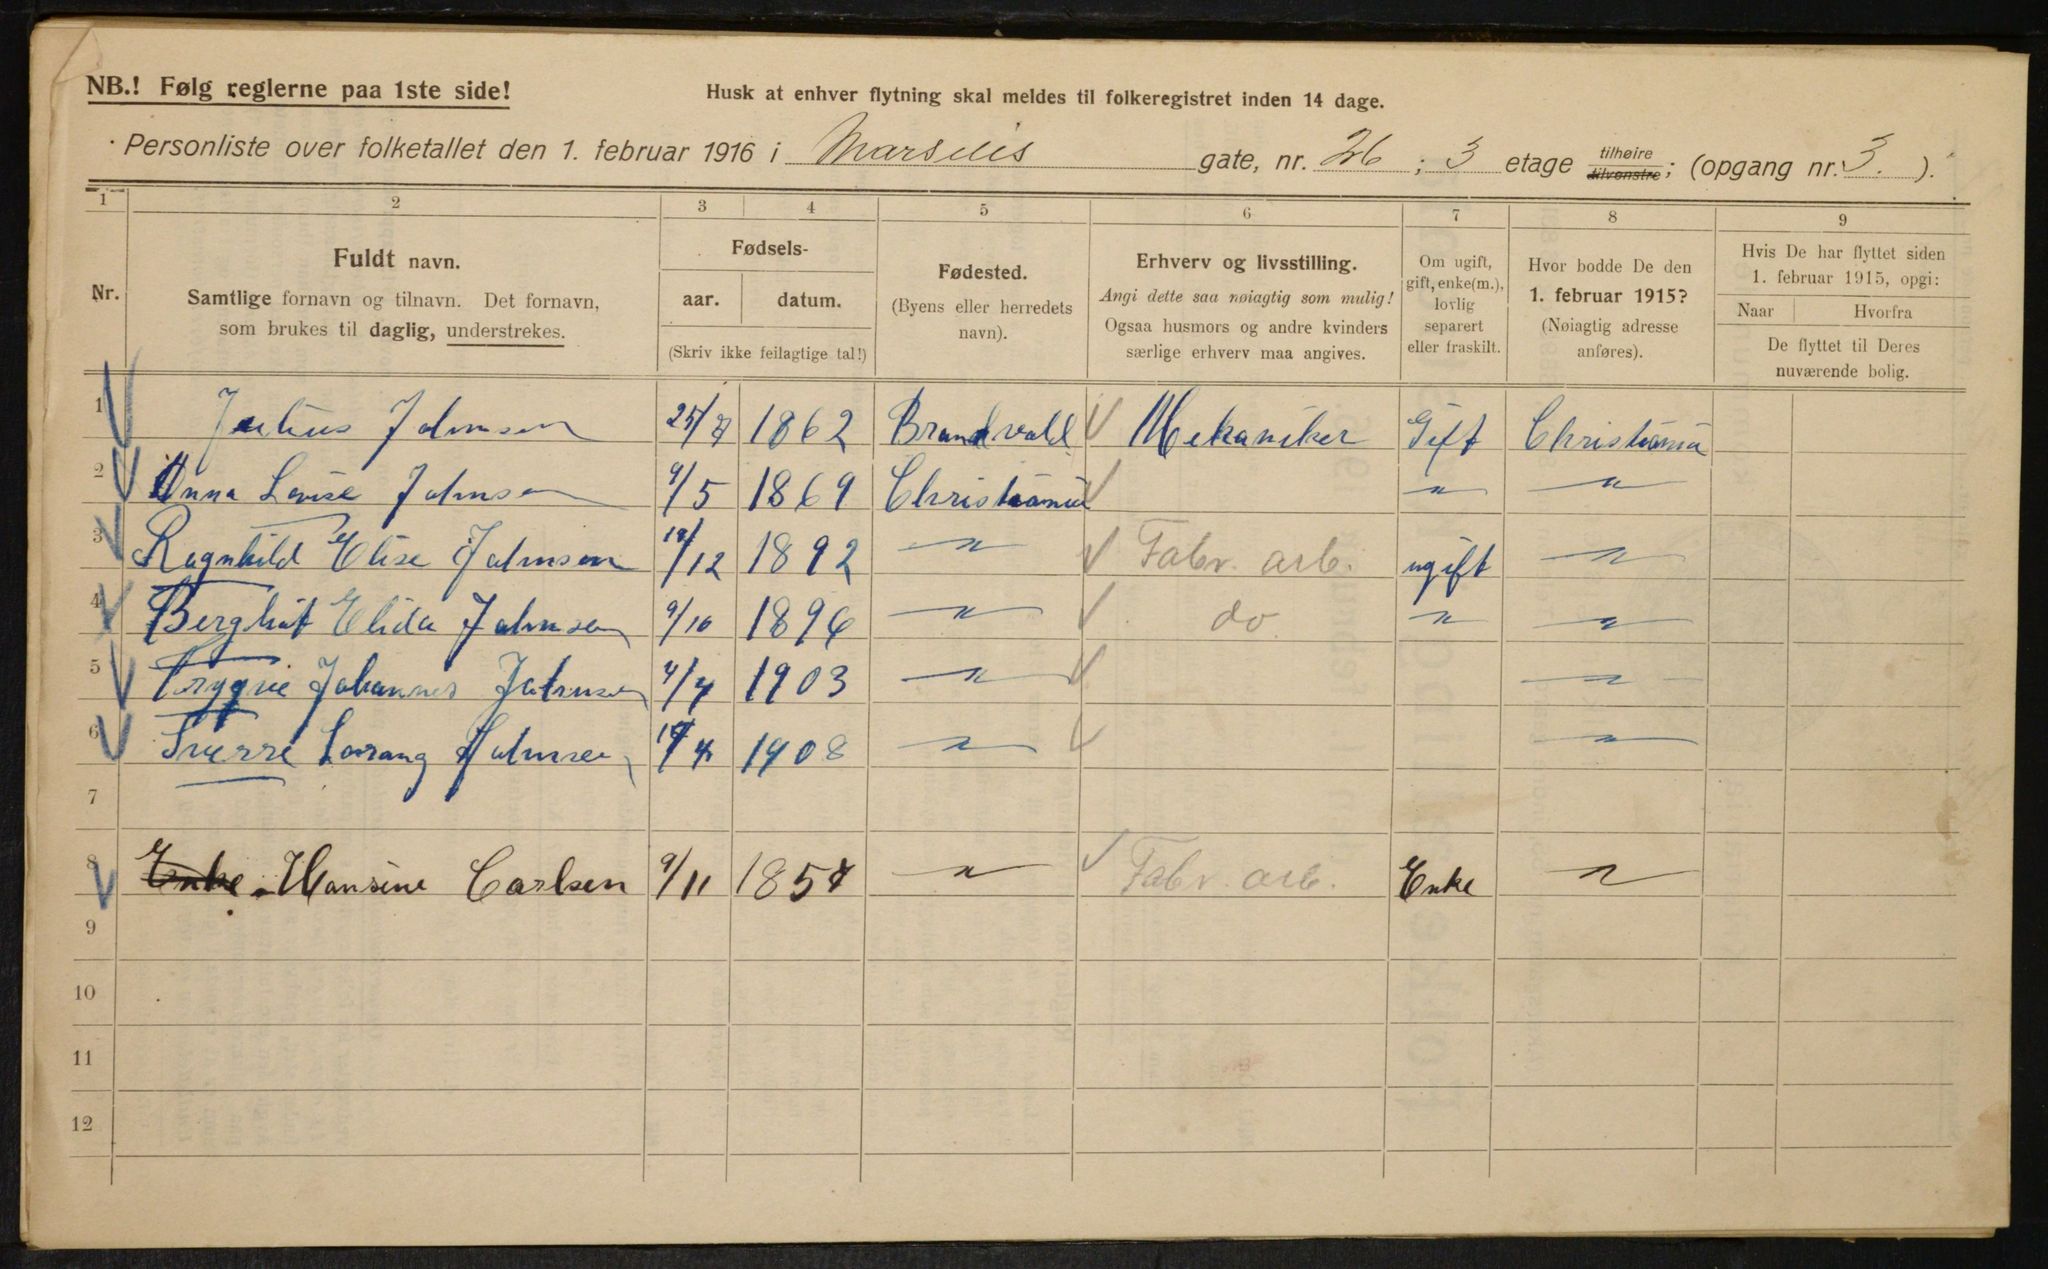 NB.! Følg reglerne paa 1ste side!
Husk at enhver flytning skal meldes til folkeregistret inden 14 dage.
Personliste over folketallet den 1. februar 1916 i Marselis gate, nr. 26 ; 3 etage tilhøire tilvenstre ; (opgang nr. 3. ).
1 2 3 4 5 6 7 8 9
Nr.
Fuldt navn.
Samtlige fornavn og tilnavn. Det fornavn,
som brukes til daglig, understrekes.
Fødsels-
aar. datum.
(Skriv ikke feilagtige tal!)
Fødested.
(Byens eller herredets
navn).
Erhverv og livsstilling.
Angi dette saa nøiagtig som mulig!
Ogsaa husmors og andre kvinders
særlige erhverv maa angives.
Om ugift,
gift, enke(m.),
lovlig
separert
eller fraskilt.
Hvor bodde De den
1. februar 1915?
(Nøiagtig adresse
anføres).
Hvis De har flyttet siden
1. februar 1915, opgi:
Naar Hvorfra
De flyttet til Deres
nuværende bolig.
1 Julius Johnsen 25/7 1862 Brandvold Mekaniker Gift Christiania
2 Anna Lovise Johnsen 9/5 1869 Christiania " "
3 Ragnhild Elise Johnsen /12 1892 " Fabr. arb. ugift "
4 Berghit Elida Johnsen 9/10 1896 " do " "
5 Trygve Johannes Johnsen 4/4 1903 " "
6 Sverre Johnsen /4 1908 " "
7
8 Enke Hansine Carlsen 9/11 1854 " Fabr. arb. Enke "
9
10
11
12